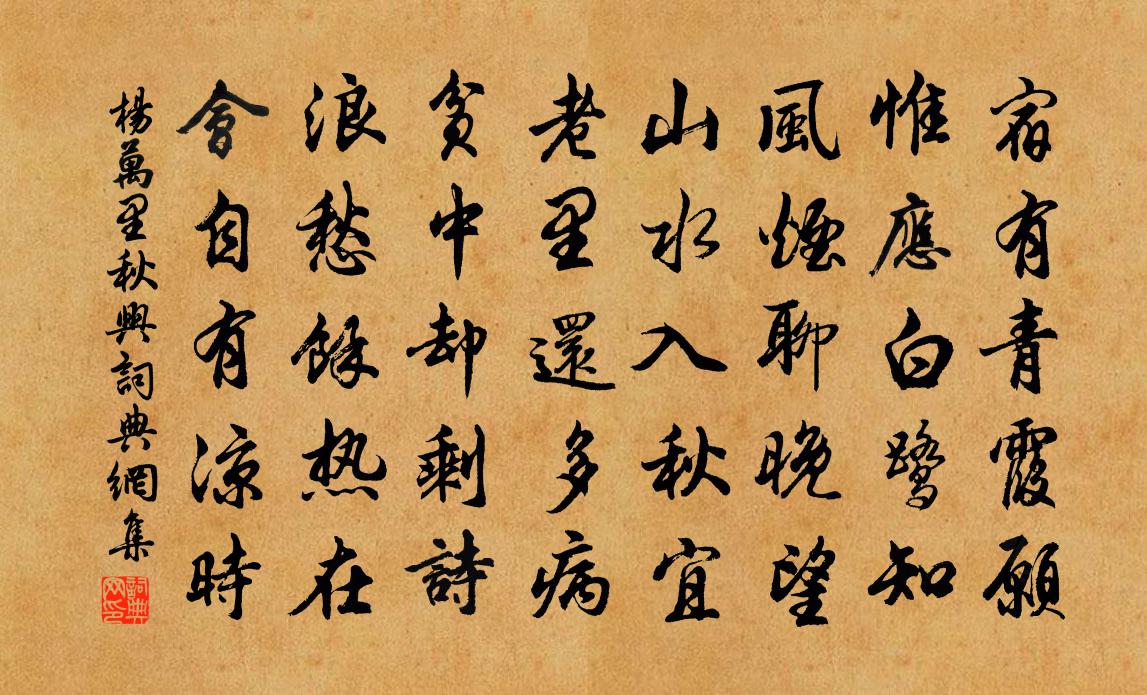 宿有青霞願
惟應白鷺知
風煙聊晚望
山水入秋宜
老里還多病
貧中却剩詩
浪愁餘热在
會自有涼時
楊萬里秋興詞典網集
詞典网印